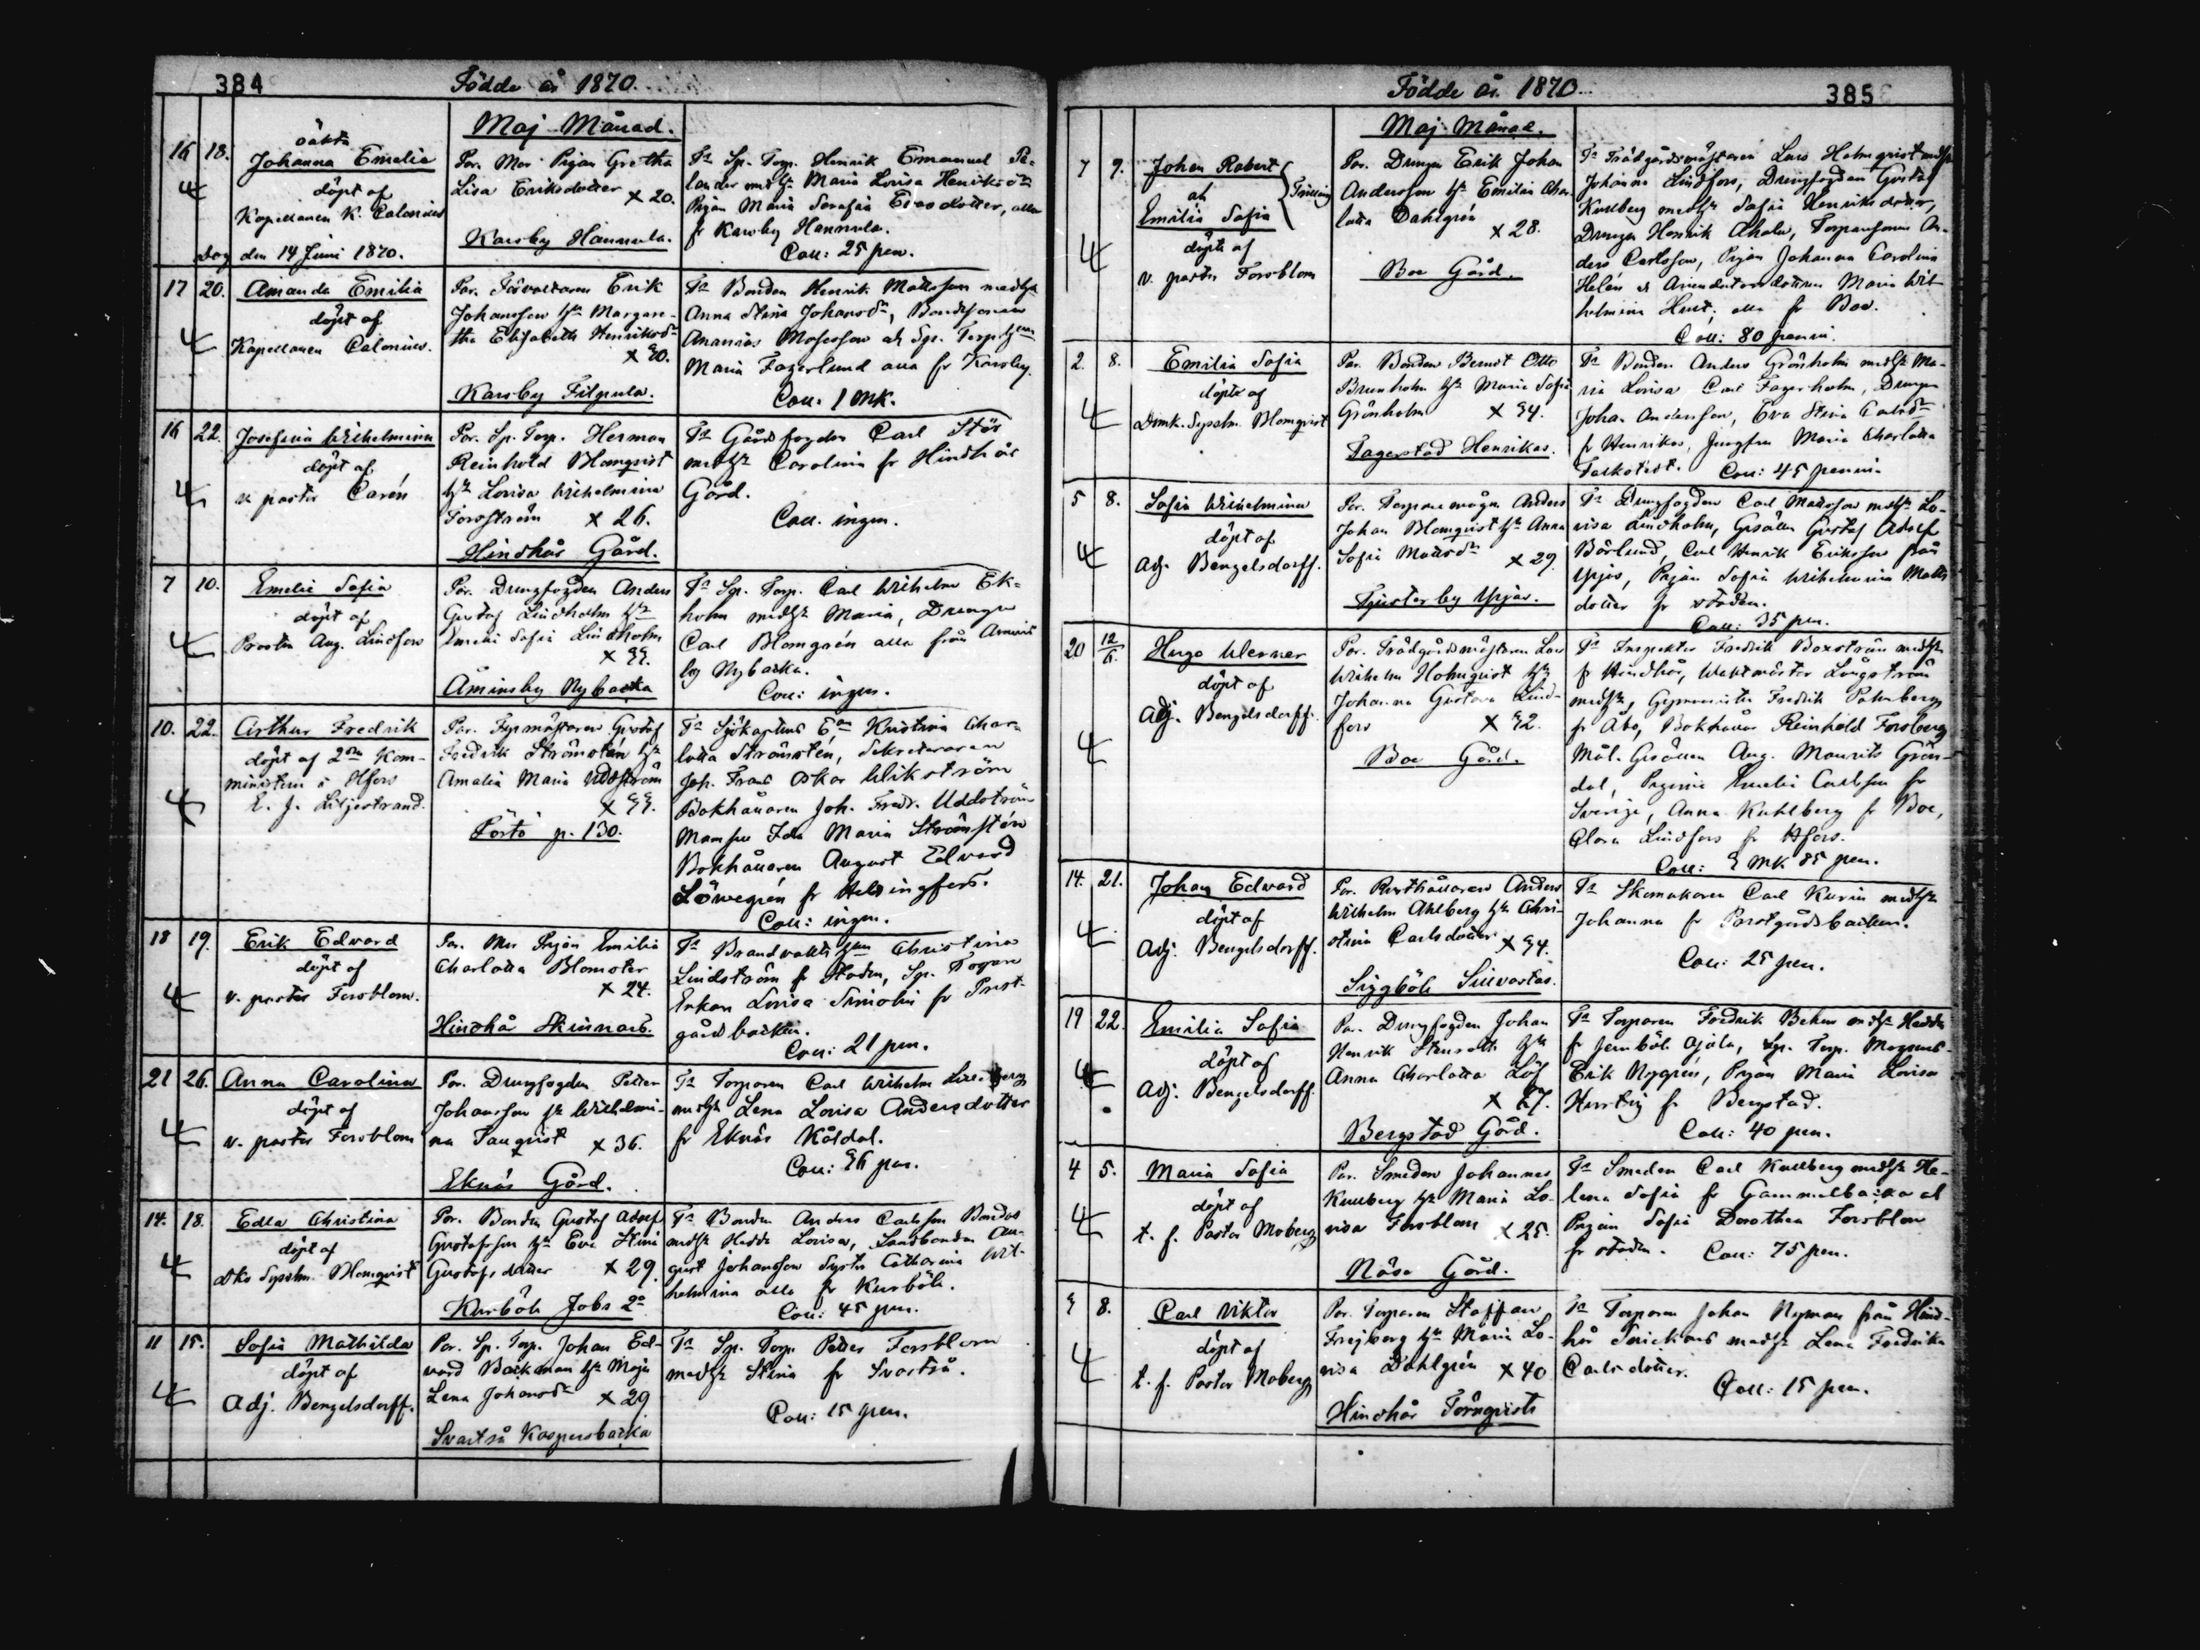 384
Födde år 1870.
Maj Månad.
16 18.
oäkta
Johanna Emelia
döpt af
Kapellanen K. Calonius
dog den 14 Juni 1870.
Par. Mor Pigan Gretha
Lisa Eriksdotter × 20.
Karsby Hannula.
Tn Sp. Torp. Henrik Emanuel
lander medhu Maria Lovisa Henriksdr
Pigan Maria Serafia Evasdotter, alla
fr Karsby Hannula.
Coll: 25 pen.
17 20.
Amanda Emilia
döpt af
Kapellanen Calonius.
Par. Förvaltaren Erik
Johansson hu Margare-
tha Elisabeth Henriksdr
Karsby Filpula.
Tn Bonden Henrik Mattsson medhu
Anna Stina Johansdr, Bondesonen
Ananias Mosesson och Sp. Torp.
Maria Fagerlund alla fr Karsby.
Coll. 1 mk.
16 22.
Josefina Wilhelmina
döpt af
v. pastor Carén
Par. Sp. Torp. Herman
Reinhold Blomqvist
hu Lovisa Wilhelmina
Forsström × 26.
Hindhår Gård.
Tn Gårdsfogden Carl Stör
medhu Carolina fr Hindhår
Gård.
Coll. ingen.
7 10.
Emelie Sofia
döpt af
Prosten Aug. Lindfors
Par. Drengfogden Anders
Gustaf Lindholm hu
Emelie Sofia Lindholm
Åminsby Nybacka
Tn Sp. Torp. Carl Wilhelm Ek-
holm medhu Maria, Drengen
Carl Blomgrén alla från Åmins
by Nybacka.
Coll: ingen.
10. 22.
Arthur Fredrik
döpt af 2dra Kom-
ministern i Hfors
L. J. Liljestrand.
Par. Fyrmästaren Gustaf
Fredrik Strömstén hu
Amalia Maria Uddström
Pörtö p. 130.
Tn Sjökaptens Kristina Char-
lotta Strömstén, Sekreteraren
Joh. Frans Oskar Wikström
Bokhållaren Joh. Fredr. Uddström
Mamsell Ida Maria Strömstén
Bokhållaren August Edvard
Löwegrén fr Helsingfors.
Coll: ingen.
18 19.
Erik Edward
döpt af
v. pastor Forsblom.
Par. Mor Pigan Emilia
Charlotta Blomster
× 24.
Hindhår Skinnars.
Tn Brandvakts Christina
Lindström fr Staden, Sp. Torpare
Enkan Lovisa Smolin fr Prest-
gårdsbacken.
Coll: 21 pen.
21 26.
Anna Carolina
döpt af
v. pastor Forsblom
Par. Drengfogden Petter
Johansson hu Wilhelmi-
na Tauqvist × 36.
Eknäs Gård.
Tn Torparen Carl Wilhelm
medhu Lena Lovisa Andersdotter
fr Eknäs Kåldal.
Coll: 36 pen.
14. 18.
Edla Christina
döpt af
Sysslm. Blomqvist
Par. Bonden Gustaf Adolf
Gustafsson hu Eva Stina
Gustafsdotter × 29.
Kurböle Jobs
Tn Bonden Anders Carlsson Bondas
medhu Hedda Lovisa, Landbonden Au-
gust Johansson Syster Catharina Wil-
helmina alla fr Kurböle.
Coll: 45 pen.
11 15.
Sofia Mathilda
döpt af
Adj. Bengelsdorff.
Par. Sp. Torp. Johan Ed-
vard Backman hu Maja
Lena Johansdr × 29
Svartså Kaspersbacka
Tn Sp. Torp Petter Forsblom
medhu Stina fr Svartså.
Coll: 15 pen.
Födde år 1870
385
Maj Månad.
7 9.
Johan Robert
och
Emilia Sofia
Tvilling
döpte af
v. pastor Forsblom
Par. Drengen Erik Johan
Andersson hu Emilia Char
lotta Dahlgrén
× 28.
Boe Gård.
Tn Trädgårdsmästaren Lars Holmqvist medhu
Johanna Lindfors, Drengfogden Gustaf
Kullberg medhu Sofia Henriksdotter,
Drengen Henrik Åholm, Torparsonen An-
ders Carlsson, Pigan Johanna Carolina
Helén o Arrendatorsdottren Maria Wil-
helmina alla fr Boe.
Coll: 80 penni.
2. 8.
Emilia Sofia
döpte af
Domk. Sysslm. Blomqvist
Par. Bonden Berndt Otto
Brunholm hu Maria Sofia
Grönholm × 34.
Fagerstad Henrikas.
Tn Bonden Anders Grönholm medhu Ma-
ria Lovisa Carl Fagerholm, Drengen
Johan Andersson, Eva Stina
fr Henrikas, Jungfru Maria Charlotta
Coll: 45 penni.
5 8.
Sofia Wilhelmina
döpt af
Adj. Bengelsdorff.
Par. Torparemågen Anders
Johan Blomqvist hu Anna
Sofia Mattsdr × 29.
Tjusterby Ypjas.
Tn Drengfogden Carl Mattsson medhu Lo-
visa Lindholm, Gesällen Gustaf Adolf
Bärlund, Carl Henrik Eriksson från
Ypjas, Pigan Sofia Wilhelmina Matts
dotter fr staden.
Coll: 35 pen.
20 12/6.
Hugo Werner
döpt af
Adj. Bengelsdorff.
Par. Trädgårdsmästaren Lars
Wilhelm Holmqvist hu
Johanna Gustava Lind-
fors × 32.
Boe Gård.
Tn Inspektor Fredrik Boxström medhu
fr Hindhår, Waktmäster Långström
medhu, Gymnasisten Fredrik Palmberg
fr Åbo, Bokhållaren Reinhold Forsberg
Mål. Gesällen Aug. Maurits Grön-
dal, Emelie Carlsson fr
Sverige, Anna Kuhlberg fr Boe,
Clara Lindfors fr Hfors.
Coll: 3 mk 85 pen.
14. 21.
Johan Edward
döpt af
Adj. Bengelsdorff.
Par. Rusthållaren Anders
Wilhelm Ahlberg hu Chri-
stina Carlsdotter × 34.
Siggböle Sillvastas.
Tn Skomakaren Carl Kurin medhu
Johanna fr Prestgårdsbacken.
Coll: 25 pen.
19 22.
Emilia Sofia
döpt af
Adj. Bengelsdorff.
Par. Drengfogden Johan
Henrik Stensroth hu
Anna Charlotta Löf
Bergstad Gård.
Tn Torparen Fredrik Behm medhu Hedda
fr Jernböle Ojala, Sp. Torp. Magnus
Erik Nygrén, Pigan Maria Lovisa
fr Bergstad.
Coll: 40 pen.
4 5.
Maria Sofia
döpt af
t. f. Pastor Moberg
Par. Smeden Johannes
Kullberg hu Maria Lo-
visa Forsblom × 25.
Näse Gård.
Tn Smeden Carl Kullberg medhu He-
lena Sofia fr Gammelbacka och
Pigan Sofia Dorothea Forsblom
fr staden. Coll: 75 pen.
3 8.
Carl Viktor
döpt af
t. f. Pastor Moberg
Par. Torparen Staffan
Frejberg hu Maria Lo-
visa Dahlgrén × 40
Hindhår Törnqvists
Tn Torparen Johan Nyman från Hind-
hår Snickars medhu Lena Fredrika
Carlsdotter.
Coll: 15 pen.